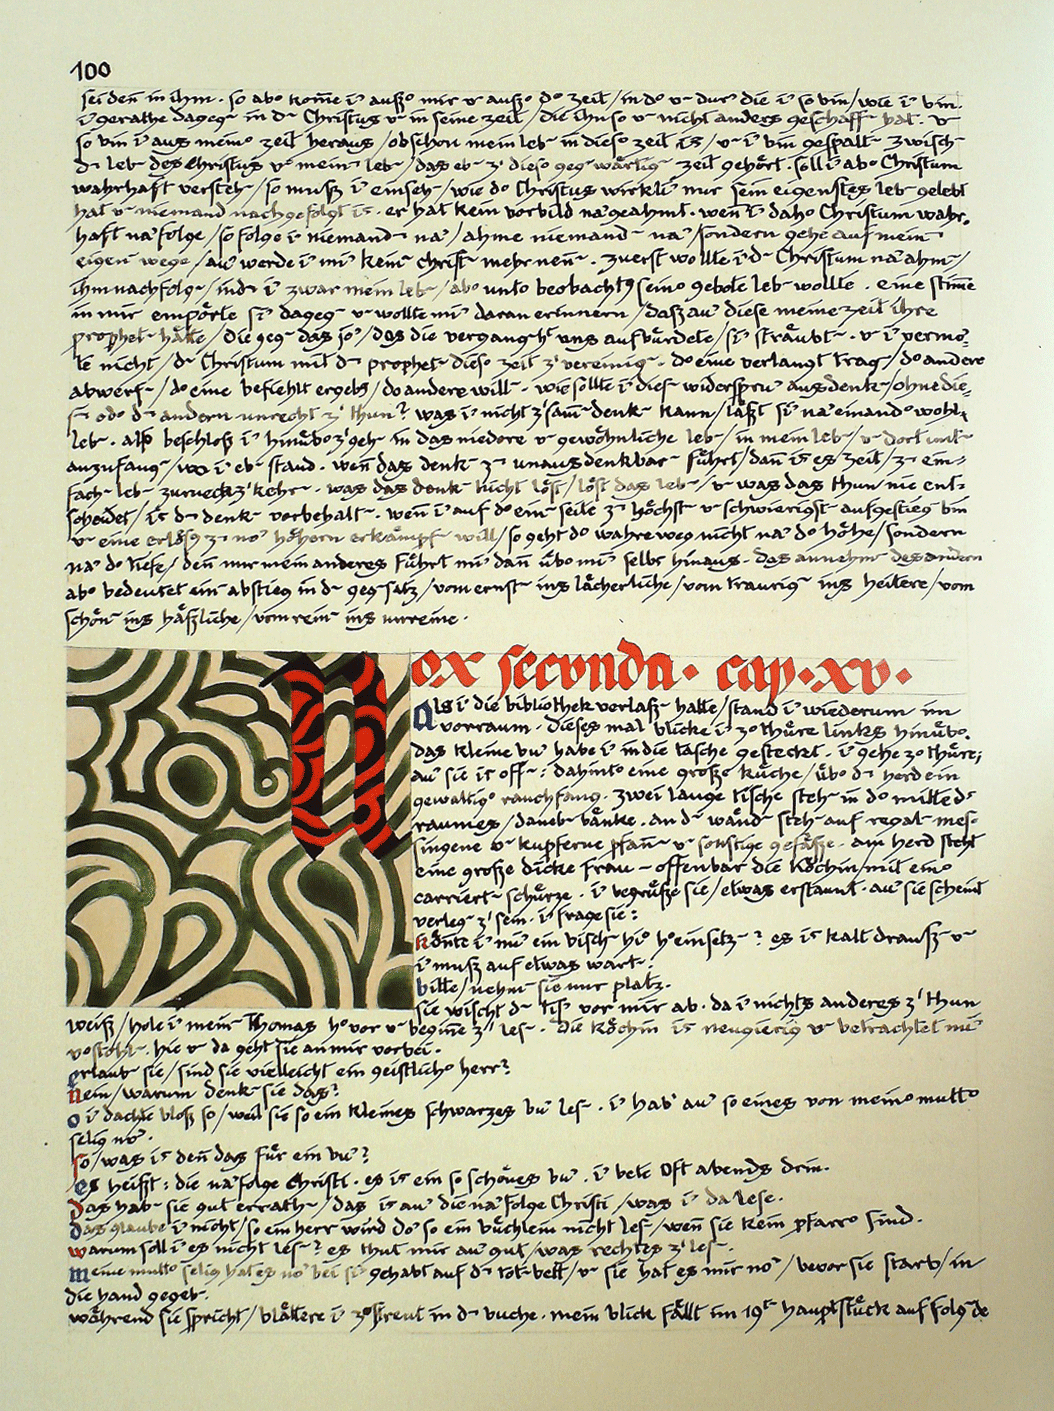 100
sei den̄ in ihm. so abo kom̄e i' außo mir v außo do zeit / in do v dur' die i' so bin / wie i' bin.
i' gerathe dageg- in d- Christus v in seine zeit / die ihn so v nicht anders geschaff- hat. v
so bin i' aus meino zeit heraus / obschon mein leb- in dieso zeit is / v i' bin gespalt- zwisch-
d- leb- des Christus v mein- leb- / das eb- z' dieso geg-wärtig- zeit gehört. soll i' abo Christum
wahrhaft versteh- / so muß i' einseh- / wie do Christus wirkli' nur sein eigenstes leb- gelebt
hat v niemand nachgefolgt is. er hat kein vorbild na'geahmt. wen̄ i' daho Christum wahr-
haft na'folge / so folge i' niemand- na' / ahme niemand- na' / sondern gehe auf mein-
eigen- wege / au' werde i' mi' kein- christ- mehr nen̄-. zuerst wollte i' d- Christum na'ahm- /
ihm nachfolg- / ind- i' zwar mein leb- / abo unto beobachtg seino gebote leb- wollte. eine stim̄e
in mir empörte si' dageg- v wollte mi' daran erinnern / daß au' diese meine zeit ihre
prophet- hätte / die geg- das jo' / das die vergang-ht uns aufbürdete / si' sträubt-. v i' vermo'-
te nicht / d- Christum mit d- prophet- dieso zeit z' vereinig-. do eine verlangt trag- / do andere
abwerf- / do eine befiehlt ergebg / do andere will-. wie sollte i' dies- widerspru' ausdenk- / ohne die-
s- odo d- andern unrecht z' thun? was i' nicht z'sam̄-denk- kan̄ / läßt si' na'einando wohl
leb-. also beschloß i' hinübo z'geh- in das niedere v gewöhnliche leb- / in mein leb- / v dort unt-
anzufang- / wo i' eb- stand. wen̄ das denk- z- unausdenkbar- führt / dan̄ is es zeit / z- ein-
fach- leb- zurueckz'kehr-. was das denk- nicht löst / löst das leb- / v was das thun nie ent-
scheidet / is d- denk- vorbehalt-. wen̄ i' auf do ein- seite z- höchst- v schwierigst- aufgestieg- bin
v eine erlösg z- no' höhern erkämpf- will / so geht do wahre weg nicht na' do höhe / sondern
na' do tiefe / den̄ nur mein anderes führt mi' dan̄ übo mi' selbst hinaus. das annehm- des andern
abo bedeutet ein- abstieg in d- geg-satz / vom ernst- ins lächerliche / vom traurig- ins heitere / vom
schön- ins häßliche / vom rein- ins unreine.
Nox secunda. cap. xv.
Als i' die bibliothek verlass- hatte / stand i' wiederum im
vorraum. dieses mal blicke i' zo thüre links hinübo.
das kleine bu' habe i' in die tasche gesteckt. i' gehe zo thüre;
au' sie is off-: dahinto eine große küche / übo d- herd ein
gewaltigo rauchfang. zwei lange tische steh- in do mitte d-
raumes / daneb- bänke. an d- wänd- steh- auf regal- mes-
singene v kupferne pfan̄- v sonstige gefäße. am herd steht
eine große dicke frau – offenbar die köchin / mit eino
carriert- schürze. i' begrüße sie / etwas erstaunt. au' sie scheint
verleg- z' sein. i' frage sie:
könte i' mi' ein bisch- hio h-einsetz-? es is kalt drauß- v
i' muß auf etwas wart-.
bitte / nehm- sie nur platz.
sie wischt d- tis' vor mir ab. da i' nichts anderes z' thun
weiß / hole i' mein- Thomas ho vor v begin̄e z' les-. die köchin is neugierig v betrachtet mi'
vostohl-. hie v da geht sie an mir vorbei.
erlaub- sie / sind sie vielleicht ein geistlicho herr?
nein / warum denk- sie das?
o i' dachte bloß so / weil sie so ein kleines schwarzes bu' les-. i' hab' au' so eines von meino mutto
selig no'.
so / was is den̄ das für ein bu'?
es heißt: die na'folge Christi. es is ein so schönes bu'. i' bete oft abends drin.
das hab- sie gut errath- / das is au' die na'folge Christi / was i' da lese.
das glaube i' nicht / so ein herr wird do' so ein büchlein nicht les- / wen̄ sie kein pfarro sind.
warum soll i' es nicht les-? es thut mir au' gut / was rechtes z' les-.
meine mutto selig hat es no' bei si' gehabt auf d- tot-bett / v sie hat es mir no' / bevor sie starb / in
die hand gegeb-.
während sie spricht / blättere i' zostreut in d- buche. mein blick fällt im 19t- hauptstück auf folg-de